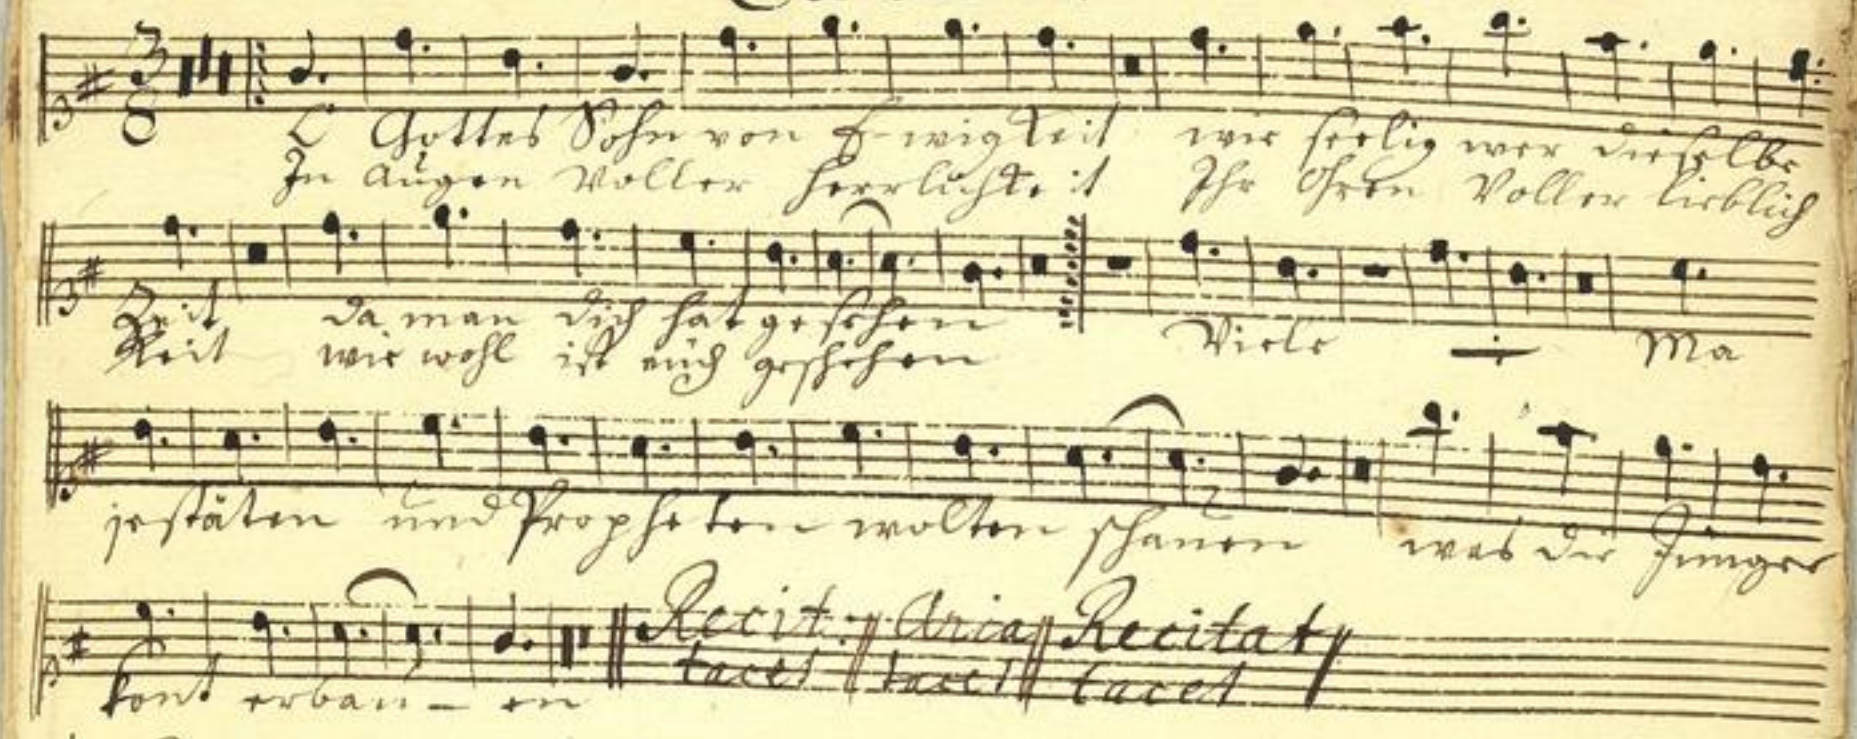 3 8
O Gottes Sohn von E-wigkeit wie seelig wer dieselbe
Ihr Augen Voller herrlichkeit Ihr Ohren Voller lieblich
Zeit da man dich hat gesehen Viele Ma
Keit wie wohl ist euch geschehen
jestäten und Propheten wolten schauen was die Jünger
kont erbau - en Recit: Aria Recitat
tacet tacet tacet